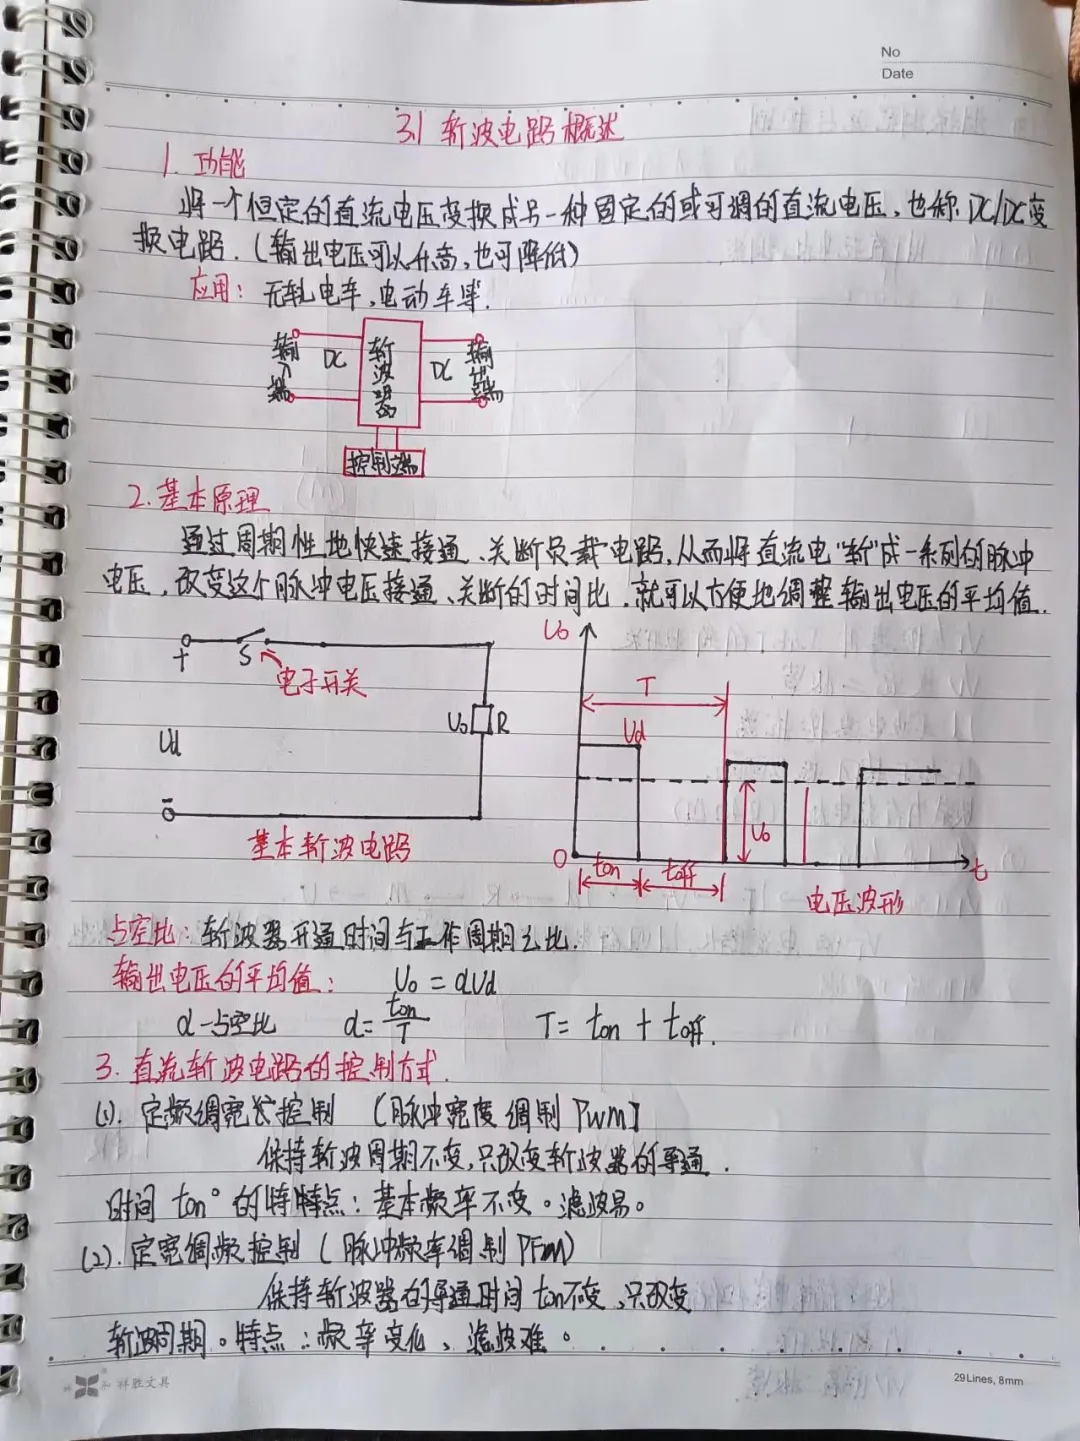 No
Date
3.1 斩波电路概述
1. 功能
将一个恒定的直流电压变换成另一种固定的或可调的直流电压，也称DC/DC变
换电路.（输出电压可以升高,也可降低）
应用：无轨电车,电动车等.
输入端 DC 斩波器 DC 输出端
控制端
2.基本原理
通过周期性地快速接通、关断负载电路,从而将直流电"斩"成一系列的脉冲
电压，改变这个脉冲电压接通、关断的时间比，就可以方便地调整输出电压的平均值.
+ S 电子开关
Ud
U₀ R
-
基本斩波电路
U₀
T
Ud
U₀
0 ton toff t
电压波形
占空比：斩波器开通时间与工作周期之比.
输出电压的平均值： U₀ = αUd
α-占空比 α= ton/T T= ton + toff.
3. 直流斩波电路的控制方式.
(1). 定频调宽长控制 （脉冲宽度调制 PWM]
保持斩波周期不变,只改变斩波器的导通.
时间 ton°的特特点：基本频率不变。滤波易。
(2). 定宽调频控制（脉冲频率调制 PFM)
保持斩波器的导通时间 ton不变、只改变
斩波周期。特点：频率变化、滤波难。
祥胜文具
29Lines, 8mm